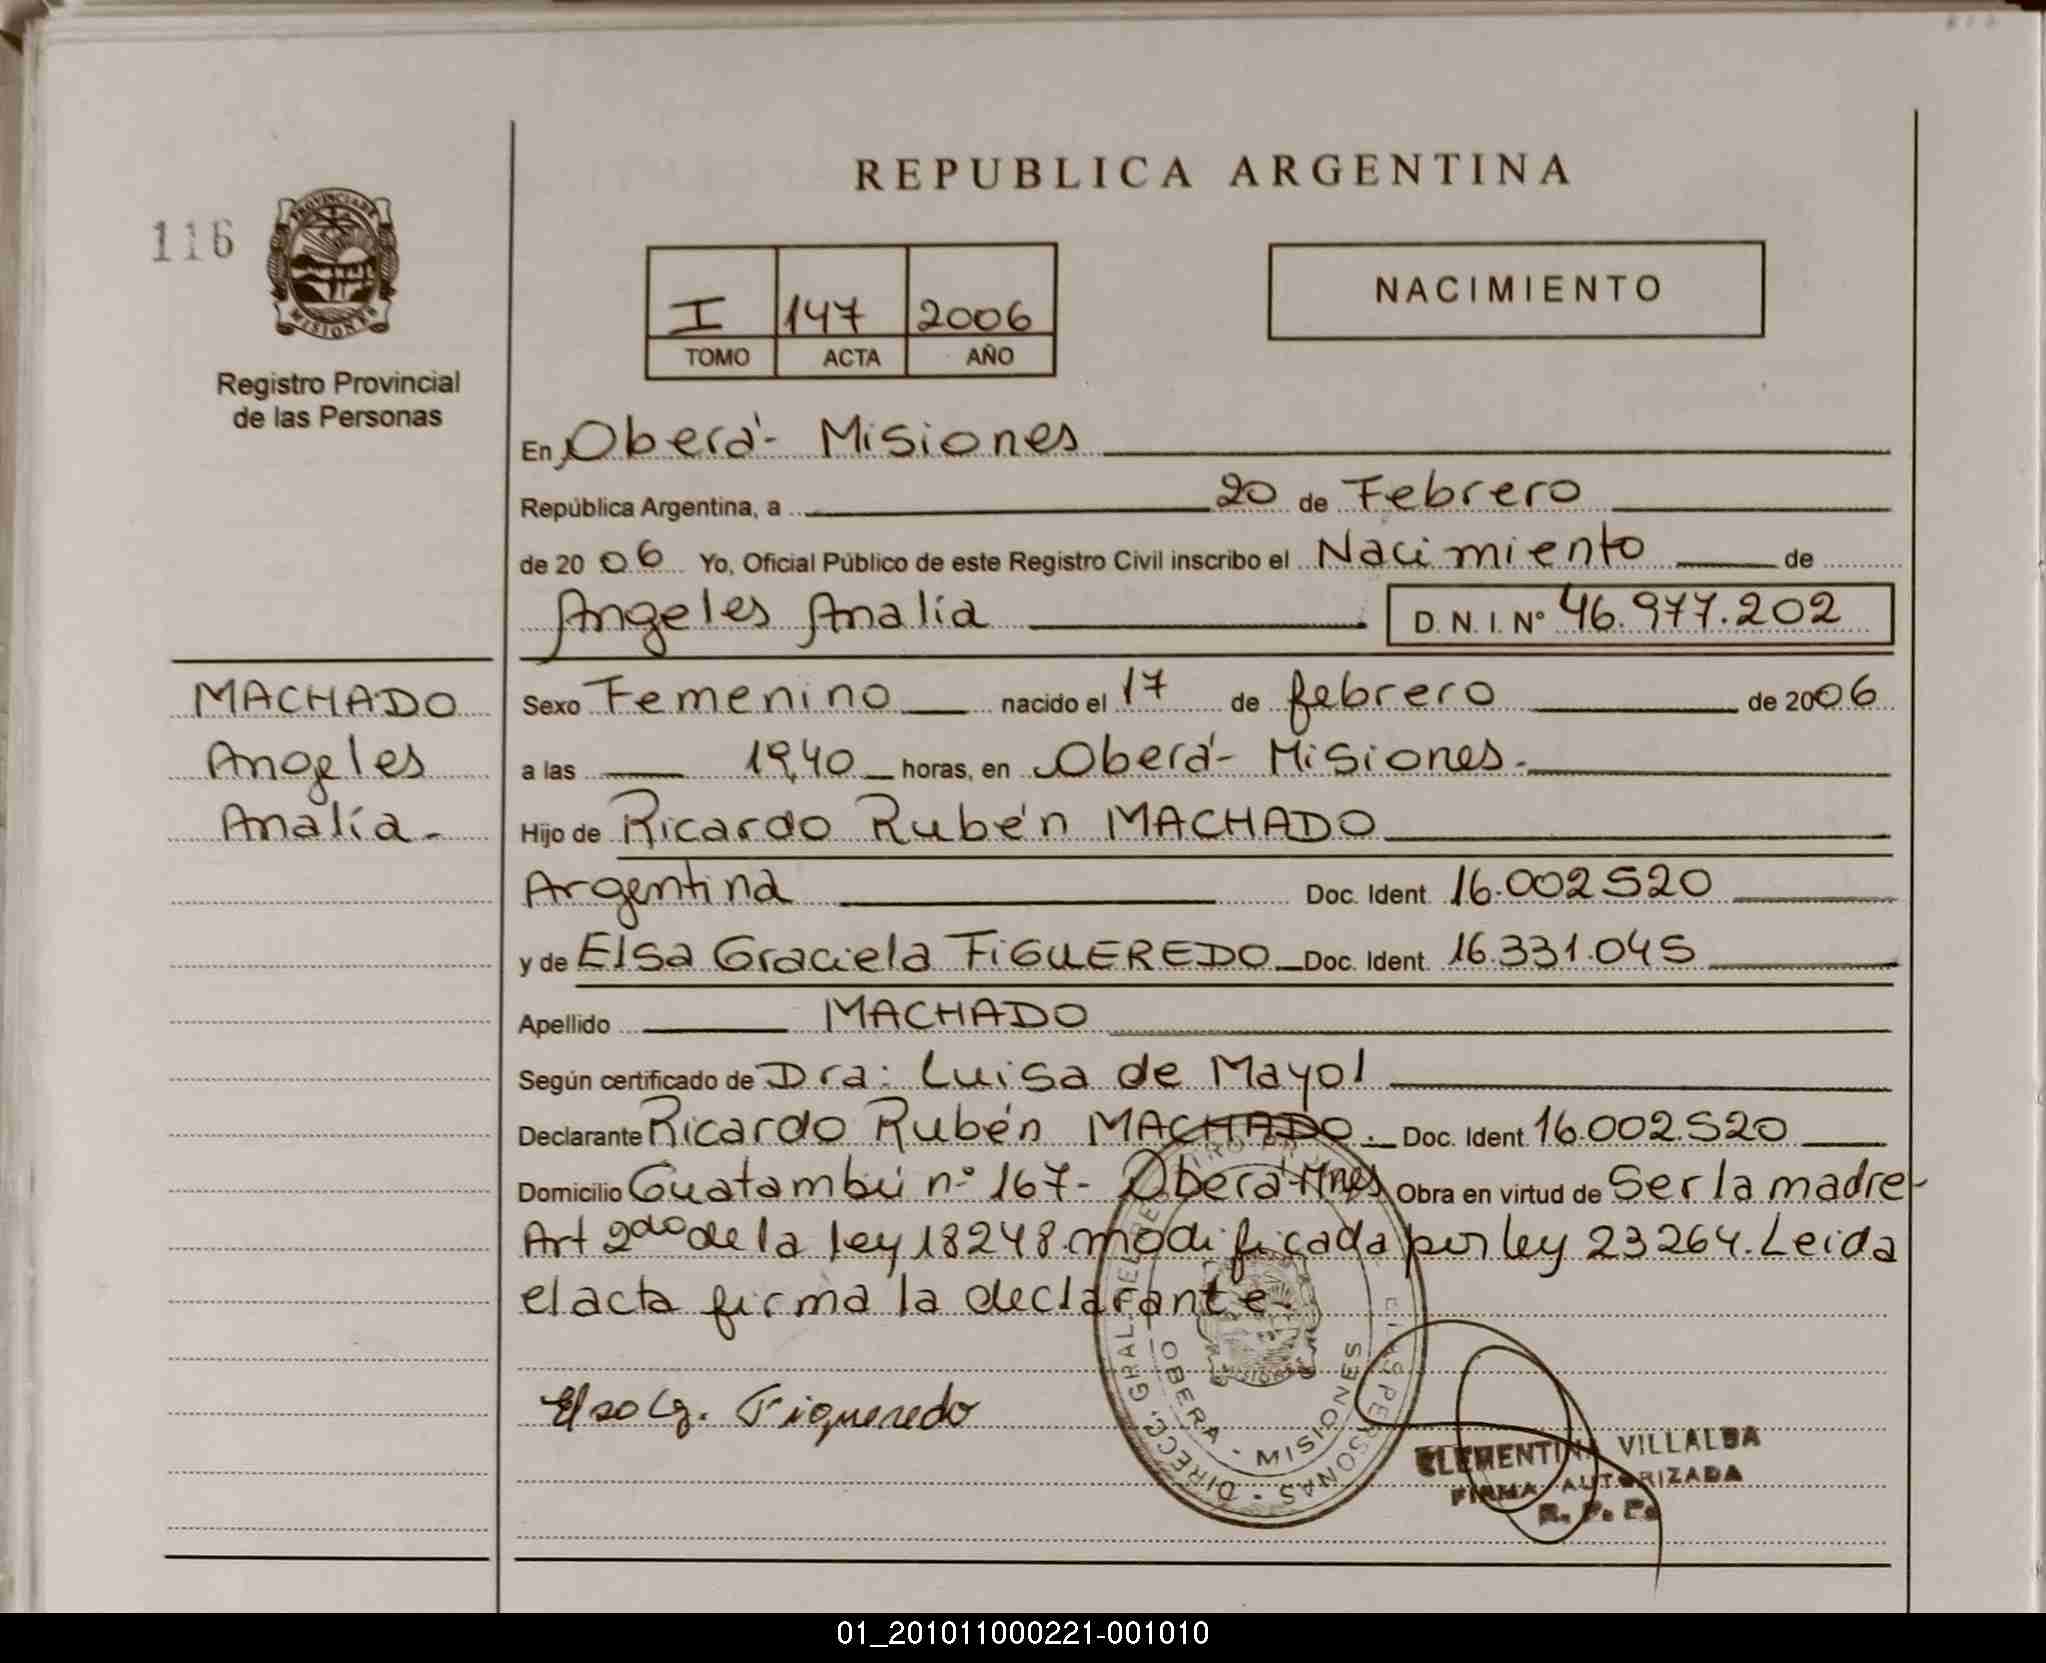 REPUBLICA ARGENTINA
116
PROVINCIA DE
MISIONES
Registro Provincial
de las Personas
I 147 2006
TOMO ACTA AÑO
NACIMIENTO
En Oberá - Misiones
República Argentina, a 20 de Febrero
de 2006 Yo, Oficial Público de este Registro Civil inscribo el Nacimiento de
Angeles Analía D. N. I. Nº 46.977.202
MACHADO
Angeles
Analía.-
Sexo Femenino nacido el 17 de febrero de 2006
a las 19,40 horas, en Oberá - Misiones.-
Hijo de Ricardo Rubén MACHADO
Argentina Doc. Ident. 16.002520
y de Elsa Graciela FiGUEREDO Doc. Ident. 16.331.045
Apellido MACHADO
Según certificado de Dra: Luisa de Mayol
Declarante Ricardo Rubén MACHADO. Doc. Ident. 16.002.520
Domicilio Guatambú nº 167- Oberá Mnes Obra en virtud de Ser la madre-
Art 2do de la ley 18248 modificada por ley 23264. Leida
el acta firma la declarante-
Elsa G. Figueredo
OBERA - MISIONES
CLEMENTINA VILLALBA
FIRMA AUTORIZADA
R. P. P.
01_201011000221-001010